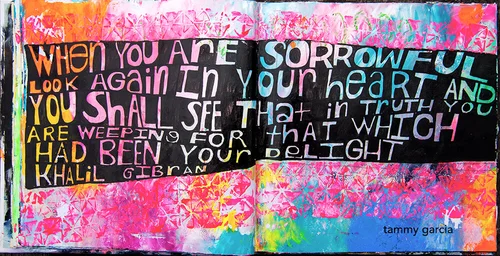 WHEN YOU ARE SORROWFUL
LOOK AGAIN IN YOUR HEART AND
YOU SHALL SEE THAT IN TRUTH YOU
ARE WEEPING FOR THAT WHICH
HAD BEEN YOUR DELIGHT
KHALIL GIBRAN
tammy garcia